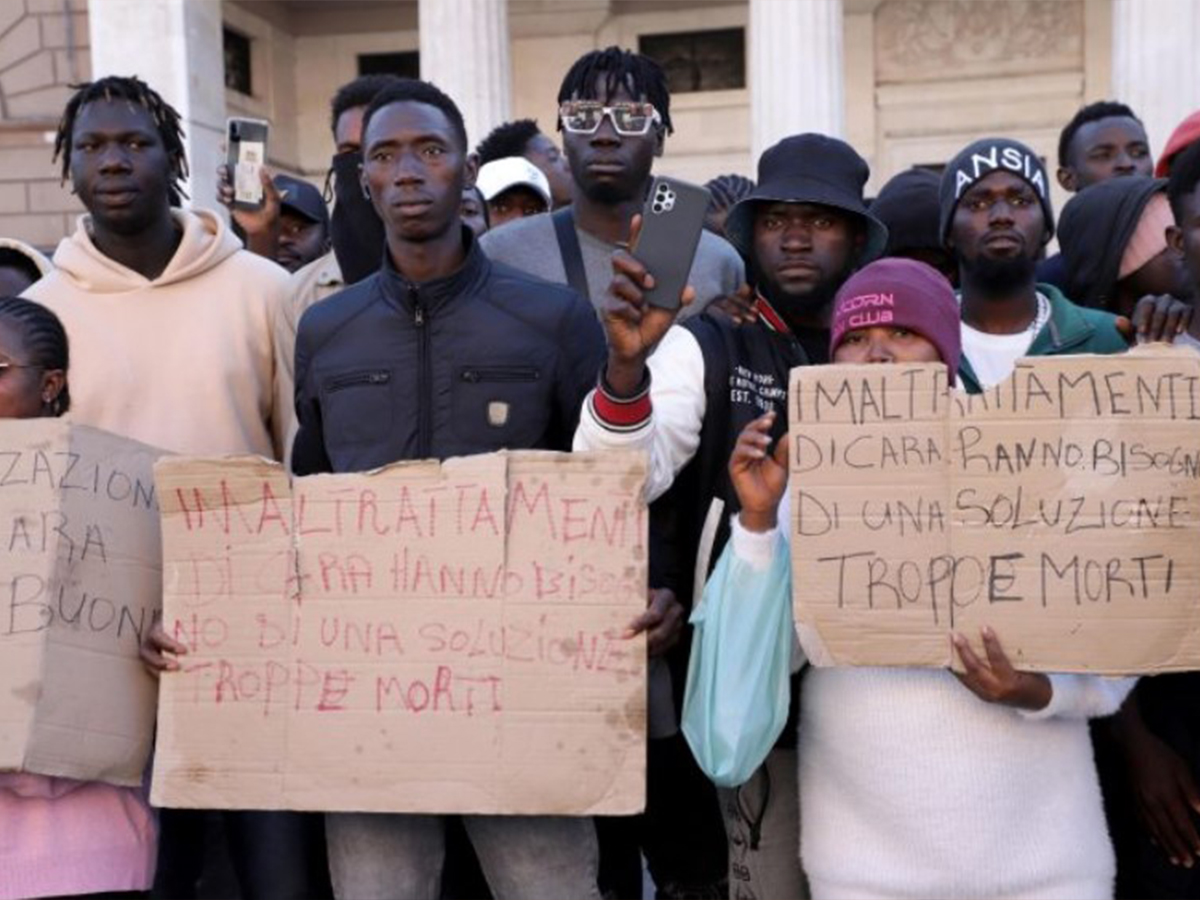 ZAZION
ARA
BUON
IMALTRATTAMENTI
DI CARA HANNO BISOG
NO DI UNA SOLUZIONE
TROPPE MORTI
ANSIA
CORN
CLUB
EST.
IMALTRATTAMENTI
DI CARA HANNO.BISOGN
DI UNA SOLUZIONE
TROPPE MORTI